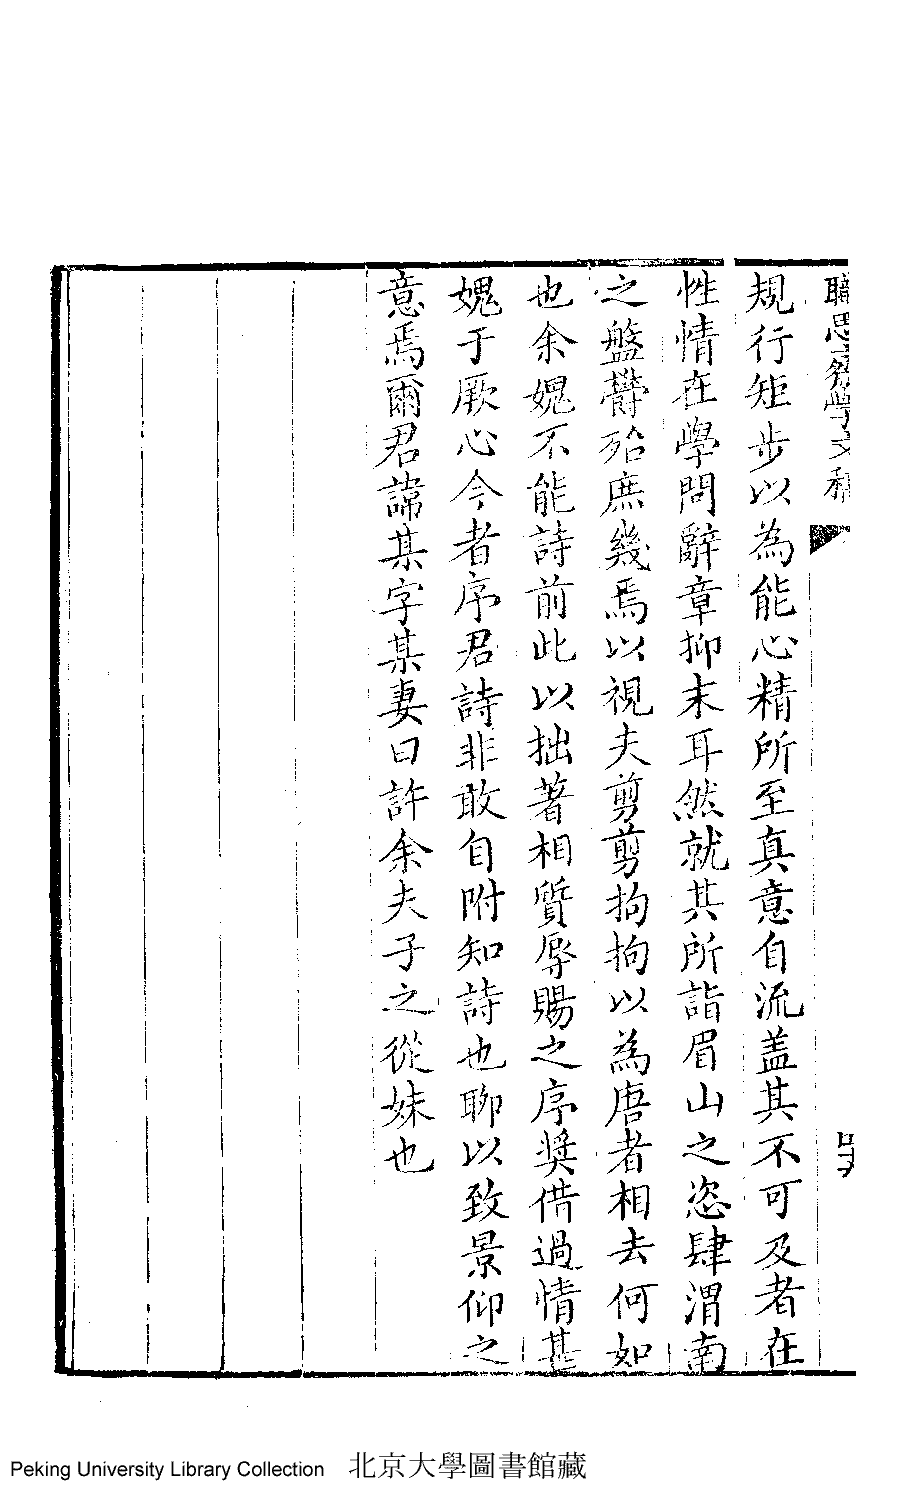 職思齋學文稿
規行矩步以為能心精所至真意自流盖其不可及者在
性情在學問辭章抑末耳然就其所詣眉山之恣肆渭南
之盤欝殆庶幾焉以視夫剪剪拘拘以為唐者相去何如
也余媿不能詩前此以拙著相質辱賜之序奬借過情甚
媿于厥心今者序君詩非敢自附知詩也聊以致景仰之
意焉爾君諱某字某妻曰許余夫子之從妹也
Peking University Library Collection 北京大學圖書館藏